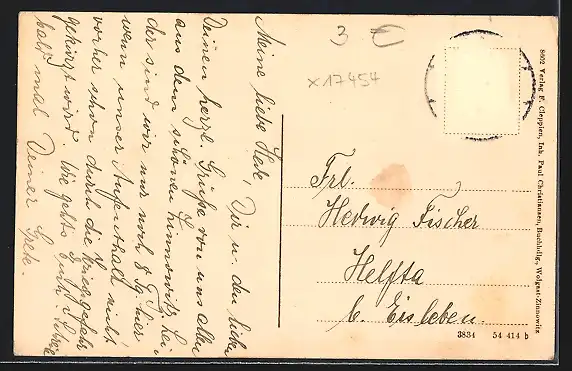 Meine liebe Hede, Dir u. den lieben
Deinen herzl. Grüße von uns allen
aus dem schönen Zinnowitz. Lei-
der sind wir nur noch 8 Tg. hier
wenn unser Aufenthalt nicht
vorher schon durch die Kriegsgefahr
gekürzt wird. Wie gehts Euch. Schreib
bald mal Deiner Grete.
3 €
x17454
Frl.
Hedwig Fischer
Helfta
b. Eisleben.
3834 54 414 b
8002 Verlag F. Cleppien, Inh. Paul Christiansen, Buchhdlg., Wolgast-Zinnowitz